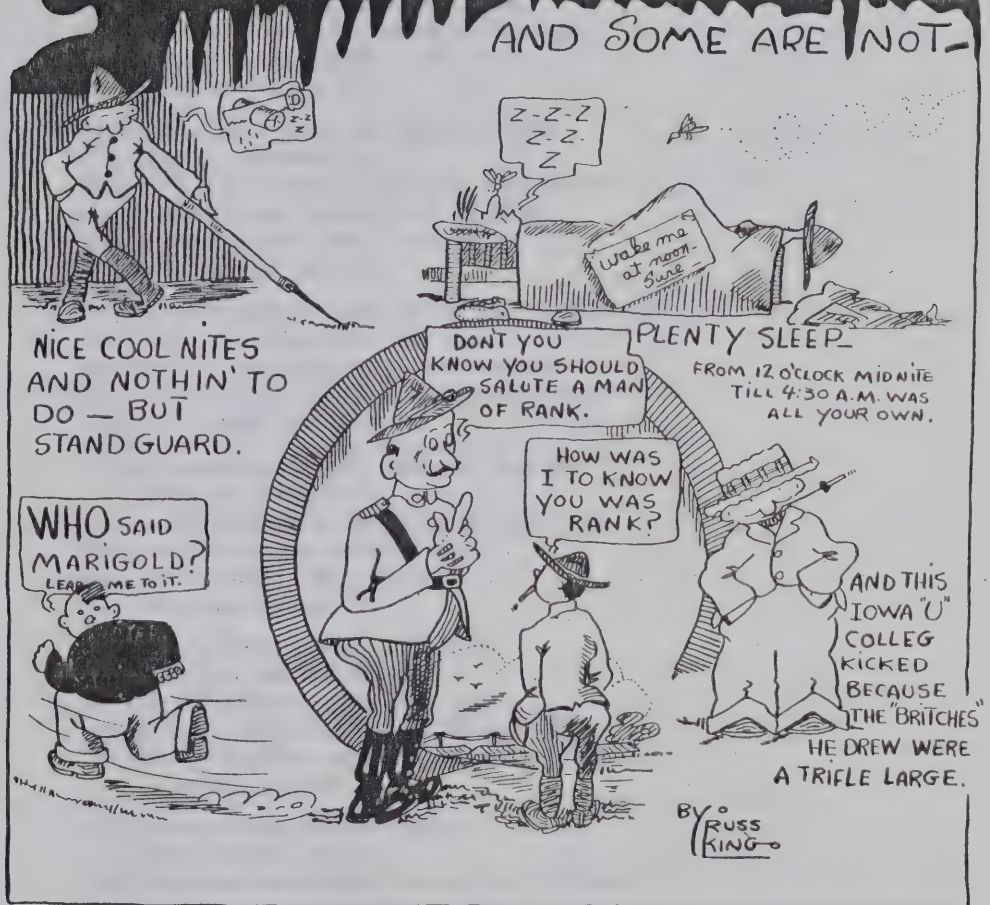 AND SOME ARE NOT—
Z-Z
Z
Z-Z-Z
Z-Z-
Z
Wake me
at noon-
Sure
NICE COOL NITES
AND NOTHIN' TO
DO — BUT
STAND GUARD.
PLENTY SLEEP—
FROM 12 O'CLOCK MIDNITE
TILL 4:30 A.M. WAS
ALL YOUR OWN.
DON'T YOU
KNOW YOU SHOULD
SALUTE A MAN
OF RANK.
HOW WAS
I TO KNOW
YOU WAS
RANK?
WHO SAID
MARIGOLD?
LEAD ME TO IT.
AND THIS
IOWA "U"
COLLEG
KICKED
BECAUSE
THE "BRITCHES"
HE DREW WERE
A TRIFLE LARGE.
BY
RUSS
KING